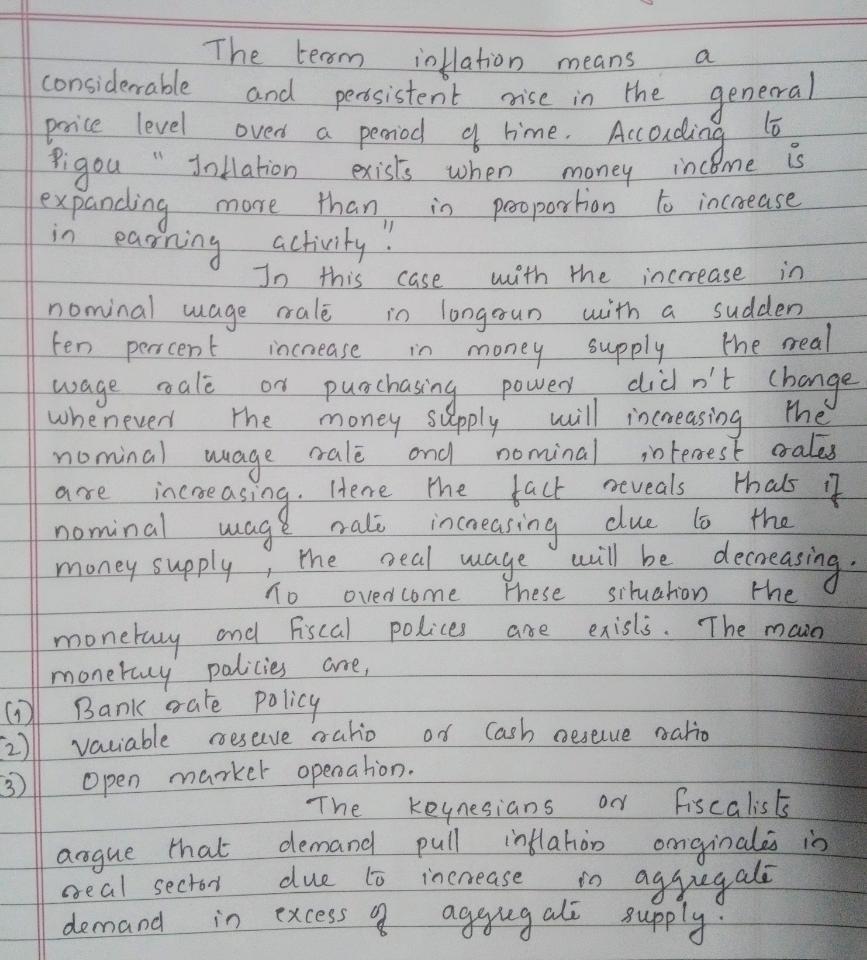 The term inflation means a
considerable and persistent rise in the general
price level over a period of time. According to
Pigou " Inflation exists when money income is
expanding more than in proportion to increase
in earning activity".
In this case with the increase in
nominal wage rate in longrun with a sudden
ten percent increase in money supply the real
wage rate or purchasing power did n't change
whenever the money supply will increasing the
nominal wage rate and nominal interest rates
are increasing. Here the fact reveals thats if
nominal wage rate increasing due to the
money supply, the real wage will be decreasing.
To overcome these situation the
monetary and fiscal polices are exists. The main
monetary policies are,
(1) Bank rate policy
(2) Variable reserve ratio or Cash reserve ratio
(3) Open market operation.
The Keynesians or fiscalists
argue that demand pull inflation originates in
real sector due to increase in aggregate
demand in excess of aggregate supply.